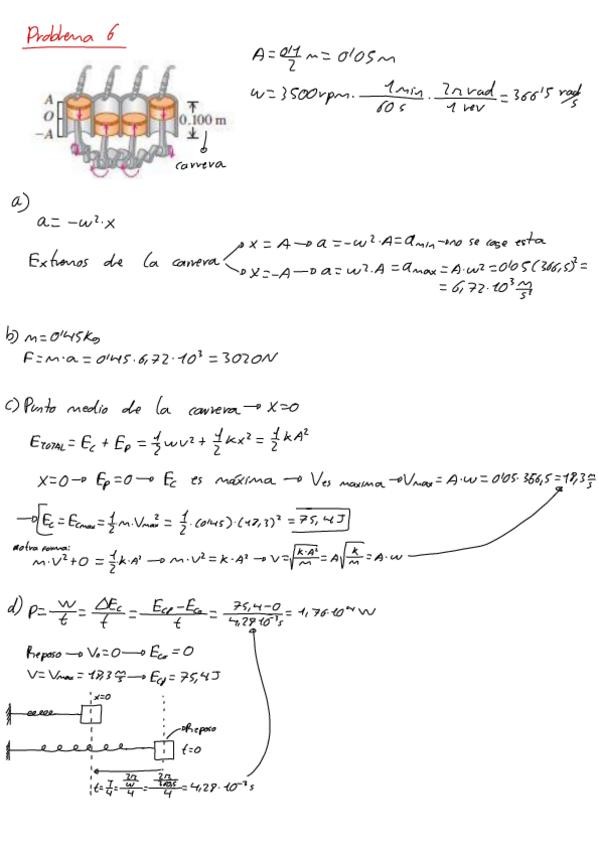 Problema 6
A = 0'1/2 m = 0'05 m
w = 3500 rpm · 1 min/60 s · 2π rad/1 rev = 366'5 rad/s
A
O
-A
0.100 m
carrera
a)
a = -w²·x
Extremos de la carrera
x = A → a = -w²·A = amin → no se coge esta
x = -A → a = w²·A = amax = A·w² = 0'05(366,5)² =
= 6,72·10³ m/s²
b) m = 0'45 Kg
F = m·a = 0'45·6,72·10³ = 3020 N
c) Punto medio de la carrera → x = 0
ETOTAL = Ec + Ep = 1/2 mv² + 1/2 kx² = 1/2 kA²
x = 0 → Ep = 0 → Ec es máxima → V es maxima → Vmax = A·w = 0'05·366,5 = 18,3 m/s
→ Ec = Ecmax = 1/2 m·Vmax² = 1/2·(0'45)·(18,3)² = 75,4 J
otra forma:
m·V² + 0 = 1/2 k·A² → m·V² = k·A² → V = √(k·A²/m) = A√(k/m) = A·w
d) P = W/t = ΔEc/t = Ecf - Eco/t = 75,4 - 0/4,28·10⁻³ s = 1,76·10⁴ W
Reposo → V₀ = 0 → Eco = 0
V = Vmax = 18,3 m/s → Ecf = 75,4 J
x=0
Reposo
t=0
t = T/4 = 2π/w/4 = 2π/366,5/4 = 4,28·10⁻³ s